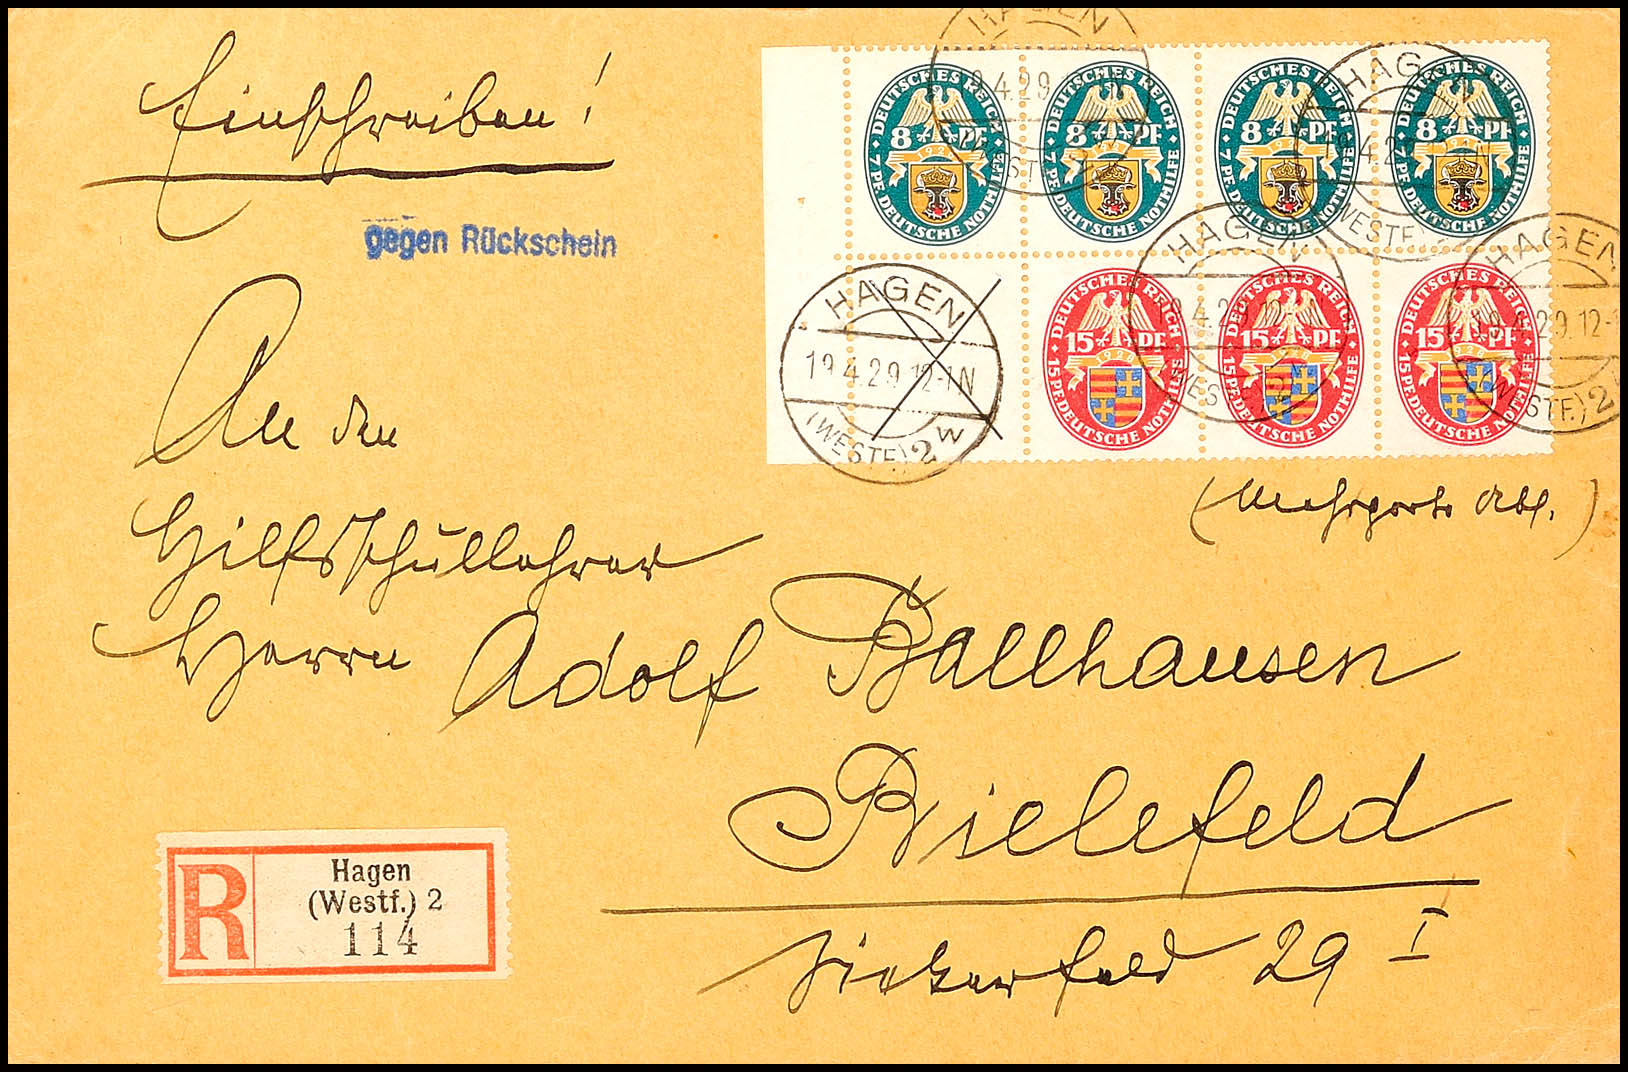 Einschreiben!
gegen Rückschein
An den
Hilfsschullehrer
Herrn Adolf Ballhausen
Bielefeld
Siekerfeld 29 I
(Mehrporto Abs.)
R
Hagen
(Westf.) 2
114
DEUTSCHES REICH
8 PF
1928
7 PF. DEUTSCHE NOTHILFE
DEUTSCHES REICH
8 PF
1928
7 PF. DEUTSCHE NOTHILFE
DEUTSCHES REICH
8 PF
1928
7 PF. DEUTSCHE NOTHILFE
DEUTSCHES REICH
8 PF
1928
7 PF. DEUTSCHE NOTHILFE
DEUTSCHES REICH
15 PF
1928
15 PF. DEUTSCHE NOTHILFE
DEUTSCHES REICH
15 PF
1928
15 PF. DEUTSCHE NOTHILFE
DEUTSCHES REICH
15 PF
1928
15 PF. DEUTSCHE NOTHILFE
HAGEN
19.4.29.12-1N
(WESTF.) 2 w
HAGEN
HAGEN
HAGEN
HAGEN
19.4.29.12-1
(WESTF.) 2